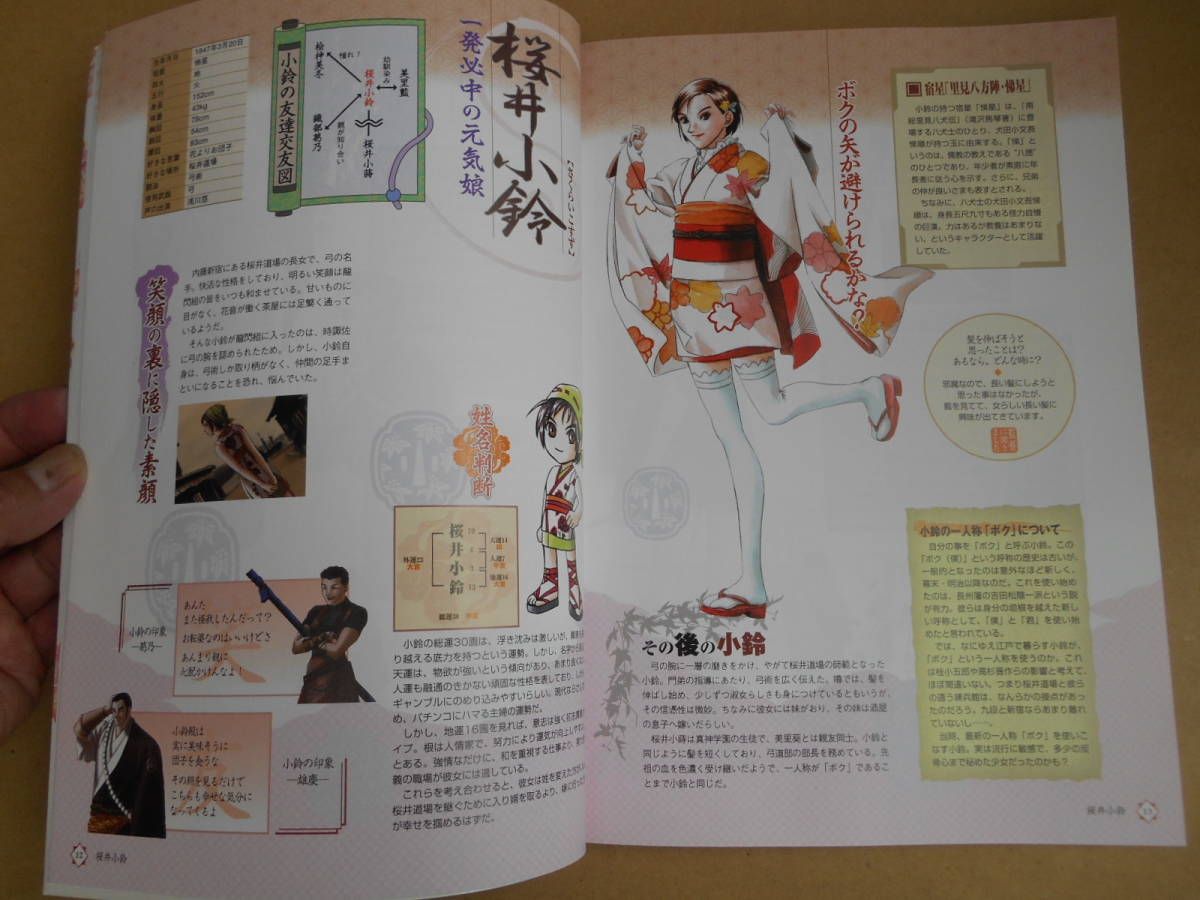 桜井小鈴
【さくらいこすず】
一発必中の元気娘
小鈴の友達交友図
桧神美冬
憧れ?
桜井小鈴
幼馴染み
美里藍
織部葛乃
親が知り合い
桜井小蒔
1847年3月20日
悌星
火
152cm
43kg
78cm
54cm
83cm
花よりお団子
桜井道場
弓術
弓
滝川豊
笑顔の裏に隠した素顔
内藤新宿にある桜井道場の長女で、弓の名
手。快活な性格をしており、明るい笑顔は龍
閃組の皆をいつも和ませている。甘いものに
目がなく、花音が働く茶屋には足繁く通って
いるようだ。
そんな小鈴が龍閃組に入ったのは、時諏佐
に弓の腕を認められたため。しかし、小鈴自
身は、弓術しか取り柄がなく、仲間の足手ま
といになることを恐れ、悩んでいた。
姓名判断
桜井小鈴
外運23
大吉
天運14
人運7
地運16
大吉
総運30
小鈴の印象
―葛乃―
あんた
また怪我したんだって?
お転婆なのはいいけどさ
あんまり親に
心配かけんなよ!
小鈴殿は
実に美味そうに
団子を食うな
その顔を見るだけで
こちらも幸せな気分に
なってくるよ
小鈴の印象
―雄慶―
小鈴の総運30画は、浮き沈みは激しいが、
り越える底力を持つという運勢。しかし、名字から
天運は、物欲が強いという傾向があり、あまり良くな
人運も融通のきかない頑固な性格を表しており、
ギャンブルにのめり込みやすいらしい。現代なら
め、パチンコにハマる主婦の運勢だ。
しかし、地運16画を見れば、意志は強く
イプ。根は人情家で、努力により運気が向上しやす
とある。強情なだけに、和を重視する仕事より、実
義の職場が彼女には適している。
これらを考え合わせると、彼女は姓を変えた方が
桜井道場を継ぐために入り婿を取るより、嫁に行った
が幸せを掴めるはずだ。
32
桜井小鈴
ボクの矢が避けられるかな?
■宿星「里見八方陣・悌星」
小鈴の持つ宿星「悌星」は、『南
総里見八犬伝』(滝沢馬琴著)に登
場する八犬士のひとり、犬田小文吾
悌順が持つ玉に由来する。「悌」と
いうのは、儒教の教えである“八徳”
のひとつであり、年少者が素直に年
長者に従う心を示す。さらに、兄弟
の仲が良いさまも表すとされる。
ちなみに、八犬士の犬田小文吾悌
順は、身長五尺九寸もある怪力自慢
の巨漢。力はあるが教養はあまりな
い、というキャラクターとして活躍
していた。
髪を伸ばそうと
思ったことは?
あるなら、どんな時に?
邪魔なので、長い髪にしようと
思った事はなかったが、
藍を見てて、女らしい長い髪に
興味が出てきています。
小鈴の一人称「ボク」について
自分の事を「ボク」と呼ぶ小鈴。この
「ボク(僕)」という呼称の歴史は古いが、
一般的となったのは意外なほど新しく、
幕末・明治以降なのだ。これを使い始め
たのは、長州藩の吉田松陰一派という説
が有力。彼らは身分の垣根を越えた新し
い呼称として、「僕」と「君」を使い始
めたと言われている。
では、なにゆえ江戸で暮らす小鈴が、
「ボク」という一人称を使うのか。これに
は桂小五郎や高杉晋作らの影響と考えて、
ほぼ間違いない。つまり桜井道場と彼ら
の通う練兵館は、なんらかの接点があっ
たのだろう。九段と新宿ならあまり離れ
ていないし……。
当時、最新の一人称「ボク」を使いこ
なす小鈴。実は流行に敏感で、多少の反
骨心まで秘めた少女だったのかも?
その後の小鈴
弓の腕に一層の磨きをかけ、やがて桜井道場の師範となった
小鈴。門弟の指導にあたり、弓術を広く伝えた。噂では、髪を
伸ばし始め、少しずつ淑女らしさも身につけているともいうが、
その信憑性は微妙。ちなみに彼女には妹がおり、その妹は酒屋
の息子へ嫁いだらしい。
桜井小蒔は真神学園の生徒で、美里葵とは親友同士。小鈴と
同じように髪を短くしており、弓道部の部長を務めている。先
祖の血を色濃く受け継いだようで、一人称が「ボク」であるこ
とまで小鈴と同じだ。
桜井小鈴
33